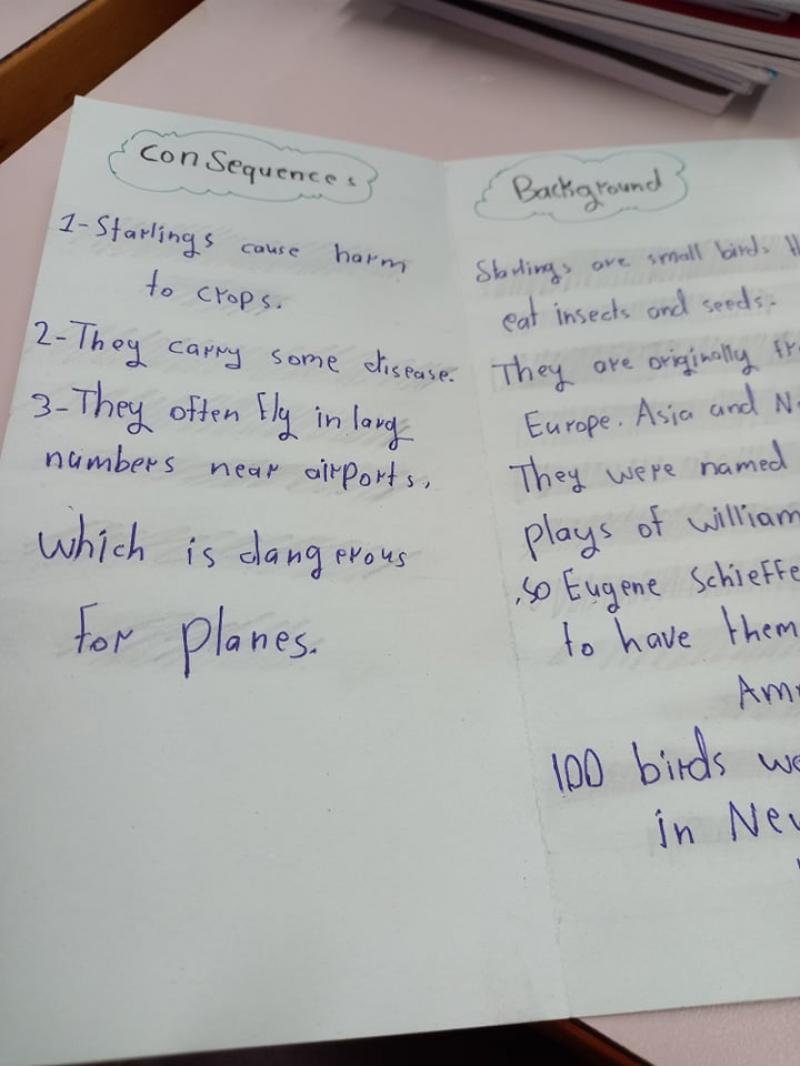 Consequences
1-Starlings cause harm
to crops.
2-They carry some disease.
3-They often fly in larg
numbers near airports,
which is dangerous
for planes.
Background
Starlings are small birds
eat insects and seeds.
They are originally
Europe. Asia and
They were named
plays of william
,so Eugene
to have them
100 birds
in